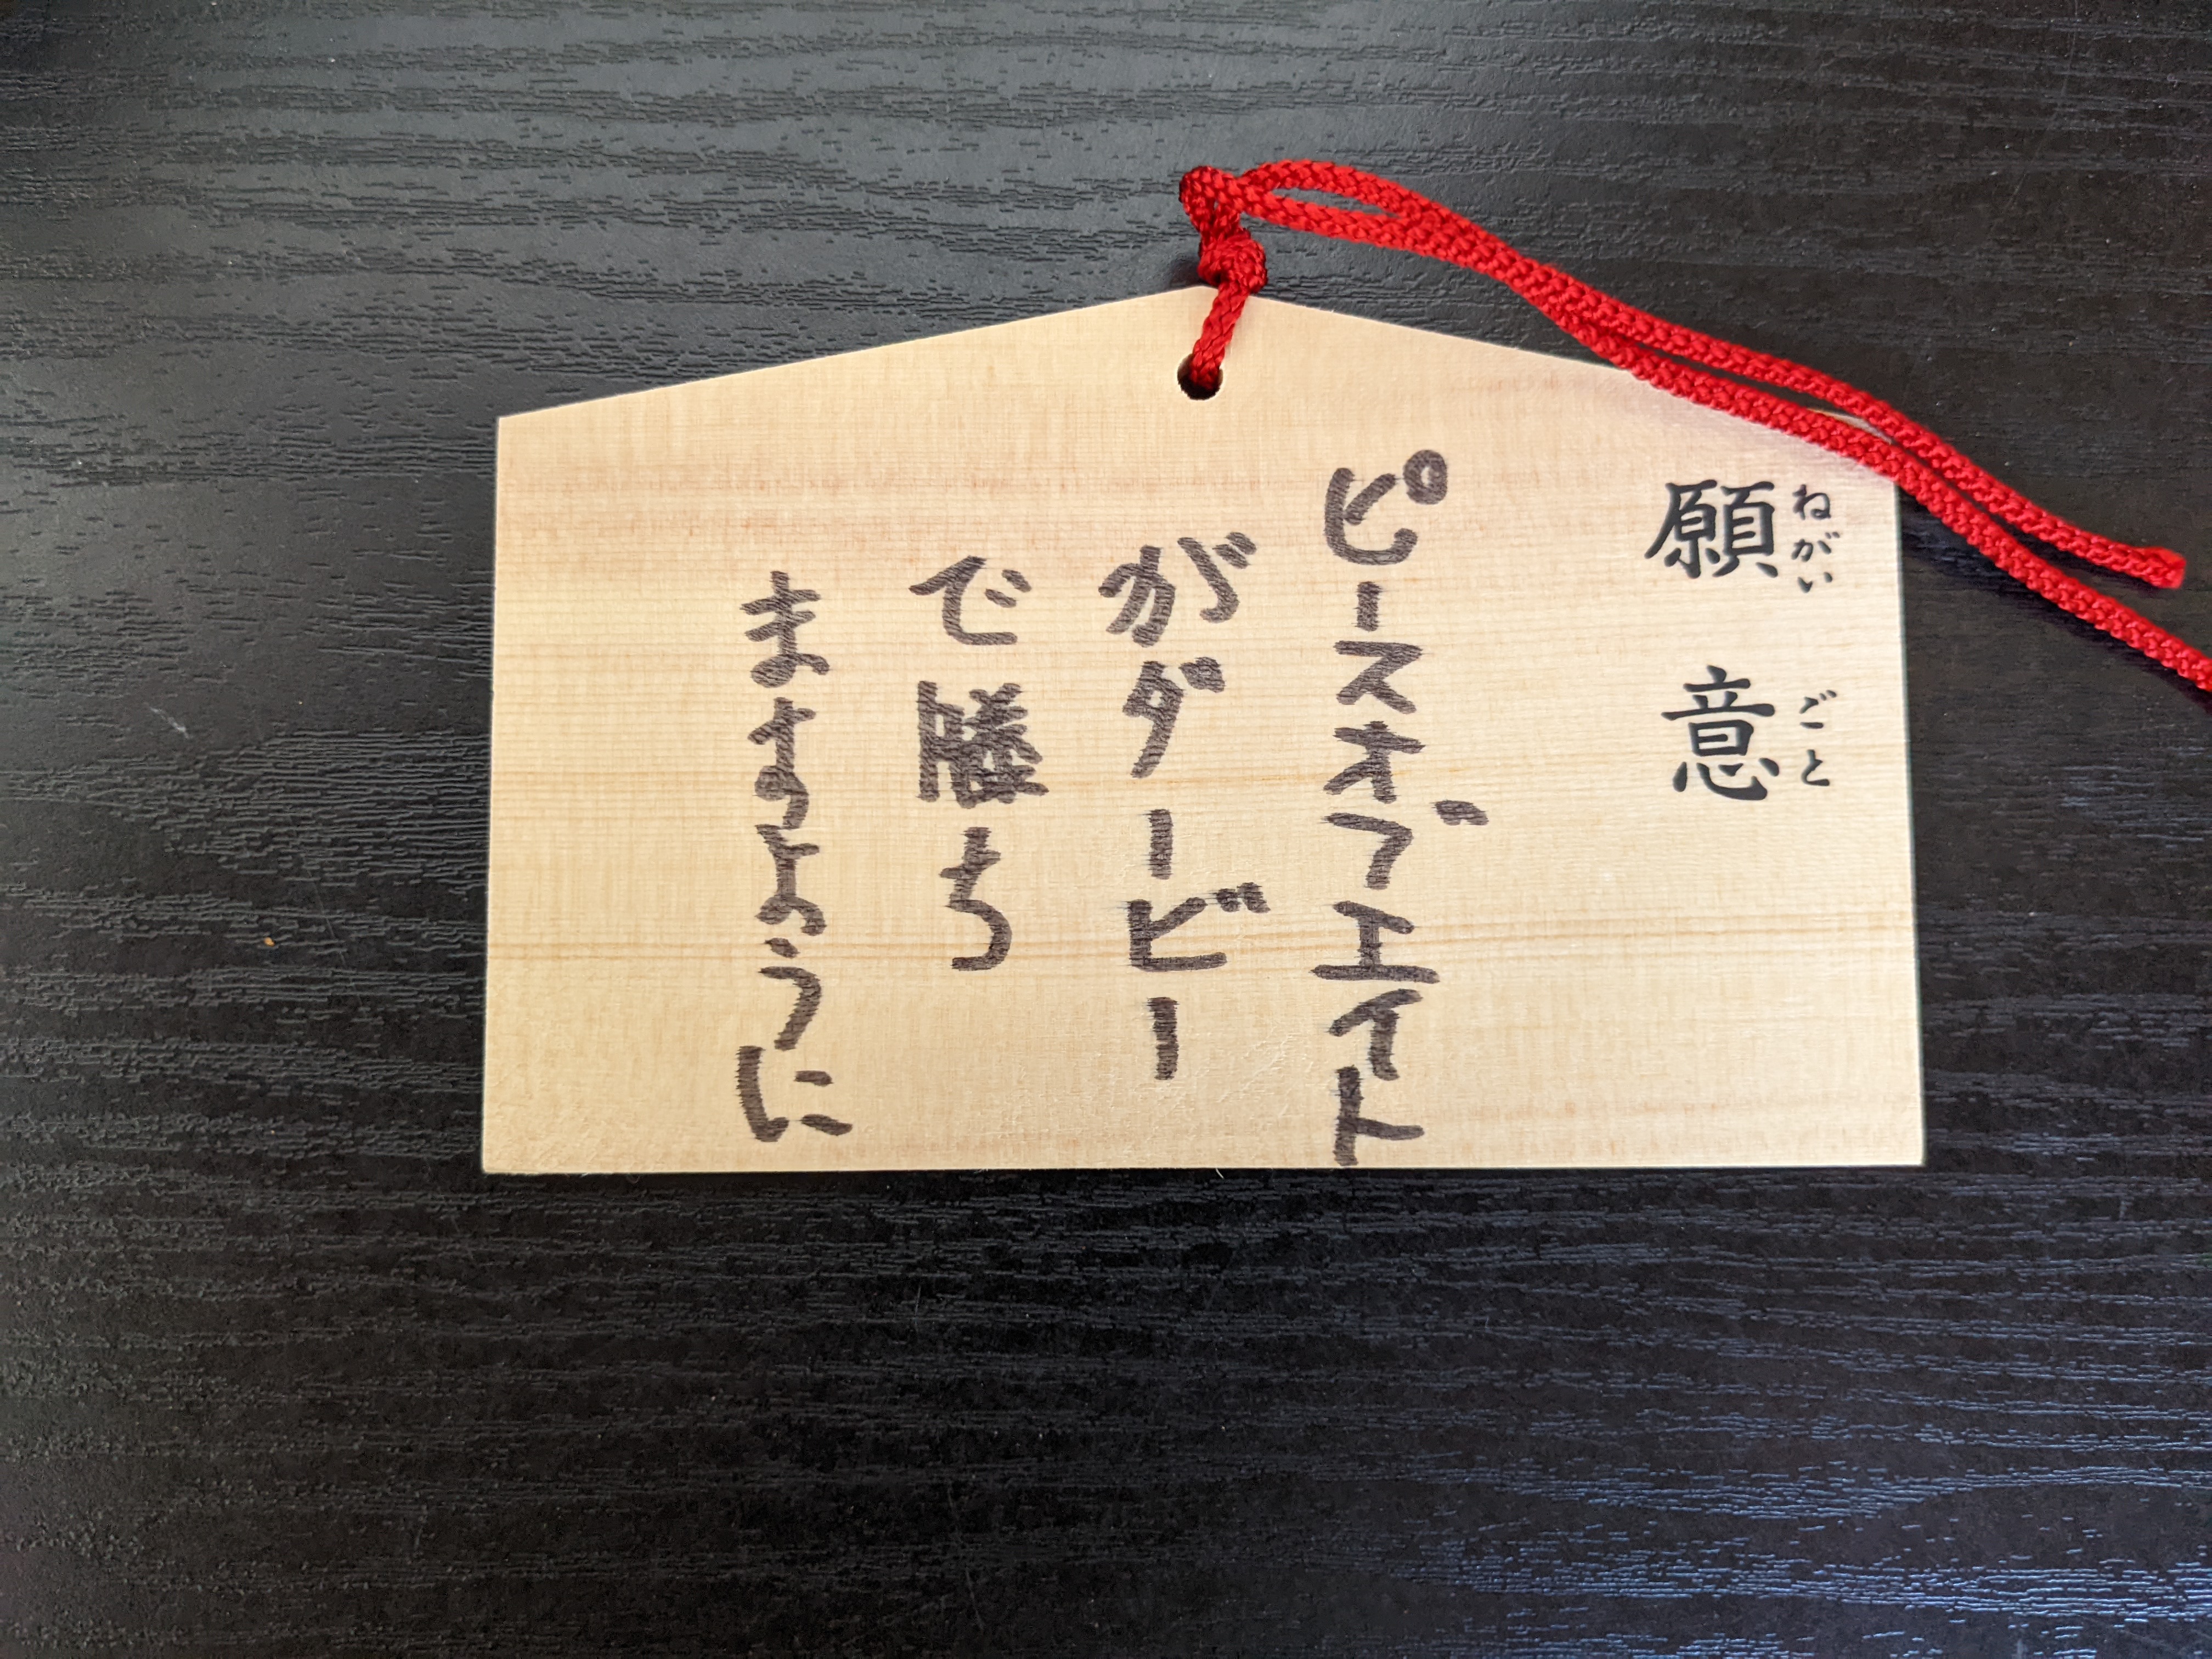 願意
ねがいごと
ピースオブエイト
がダービー
で勝ち
ますように